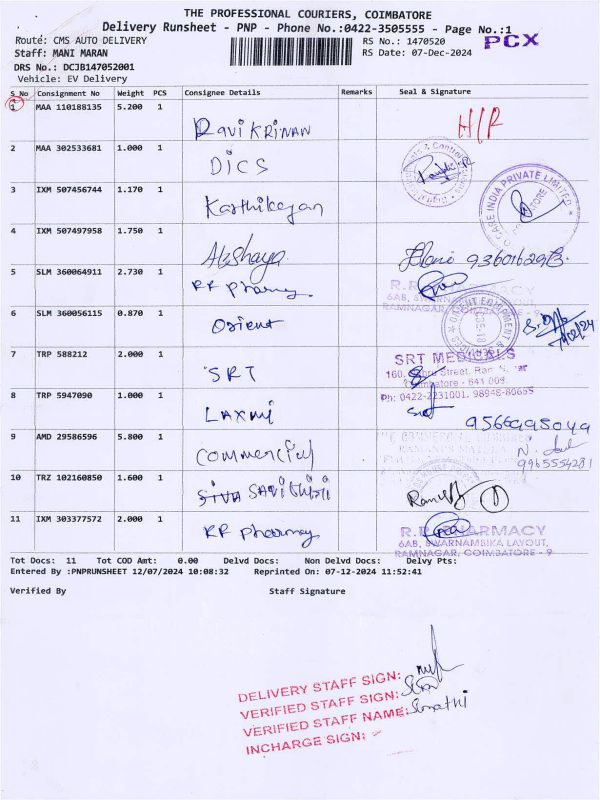 THE PROFESSIONAL COURIERS, COIMBATORE
Delivery Runsheet - PNP - Phone No.:0422-3505555 - Page No.:1
PCX
Route: CMS AUTO DELIVERY
RS No.: 1470520
Staff: MANI MARAN
RS Date: 07-Dec-2024
DRS No.: DCJB147052001
Vehicle: EV Delivery
S No Consignment No Weight PCS Consignee Details Remarks Seal & Signature
1 MAA 110188135 5.200 1
Ravi KRINAN
H/R
2 MAA 302533681 1.000 1
DICS
3 IXM 507456744 1.170 1
Karthikeyan
CARE INDIA PRIVATE LIMITED
4 IXM 507497958 1.750 1
Akshaya
5 SLM 360064911 2.730 1
RR pharmacy
RAMNAGAR, COIMBATORE
6 SLM 360056115 0.870 1
Orient
7 TRP 588212 2.000 1
SRT
SRT MEDICALS
Coimbatore - 641 009.
Ph: 0422-2231001, 98948-80655
8 TRP 5947090 1.000 1
LAXMI
9566998049
9 AMD 29586596 5.800 1
Commercial
9965554281
10 TRZ 102160850 1.600 1
SIVA SAVITHIRI
11 IXM 303377572 2.000 1
RR pharmacy
R.R. PHARMACY
6AB, SWARNAMBIKA LAYOUT,
RAMNAGAR, COIMBATORE - 9
Tot Docs: 11 Tot COD Amt: 0.00 Delvd Docs: Non Delvd Docs: Delvy Pts:
Entered By :PNPRUNSHEET 12/07/2024 10:08:32 Reprinted On: 07-12-2024 11:52:41
Verified By Staff Signature
DELIVERY STAFF SIGN:
VERIFIED STAFF SIGN:
VERIFIED STAFF NAME: Sumathi
INCHARGE SIGN: